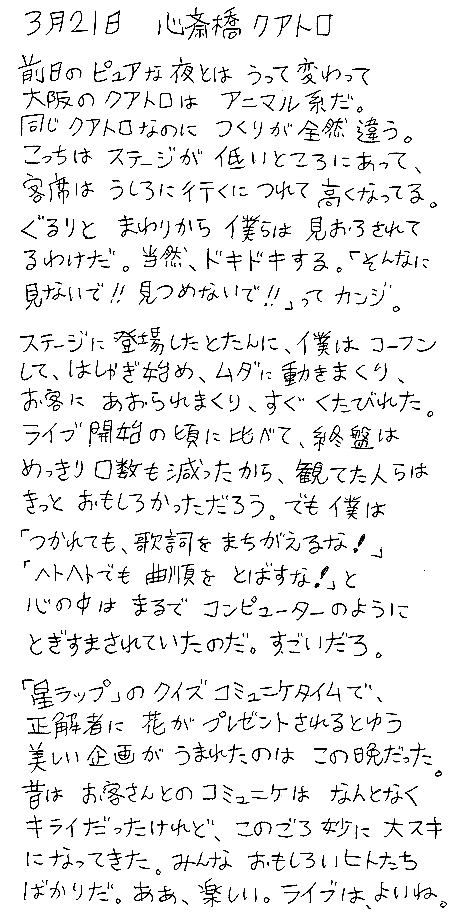 3月21日　心斎橋クアトロ
前日のピュアな夜とは うって変わって
大阪のクアトロは アニマル系だ。
同じクアトロなのに つくりが全然違う。
こっちは ステージが 低いところにあって、
客席は うしろに行くに つれて 高くなってる。
ぐるりと まわりから 僕らは 見おろされて
るわけだ。当然、ドキドキする。「そんなに
見ないで!! 見つめないで!!」って カンジ。
ステージに 登場したとたんに、僕は コーフン
して、はしゃぎ始め、ムダに動きまくり、
お客に あおられまくり、すぐ くたびれた。
ライブ開始の頃に比べて、終盤は
めっきり口数も減ったから、観てた人らは
きっと おもしろかっただろう。でも僕は
「つかれても、歌詞を まちがえるな!」
「ヘトヘトでも 曲順を とばすな!」と
心の中は まるで コンピューターのように
とぎすまされていたのだ。すごいだろ。
「星ラップ」の クイズ コミュニケタイムで、
正解者に 花が プレゼントされるとゆう
美しい企画が うまれたのは この晩だった。
昔は お客さんとの コミュニケは なんとなく
キライだったけれど、このごろ 妙に 大スキ
になってきた。みんな おもしろいヒトたち
ばかりだ。ああ、楽しい。ライブは、よいね。